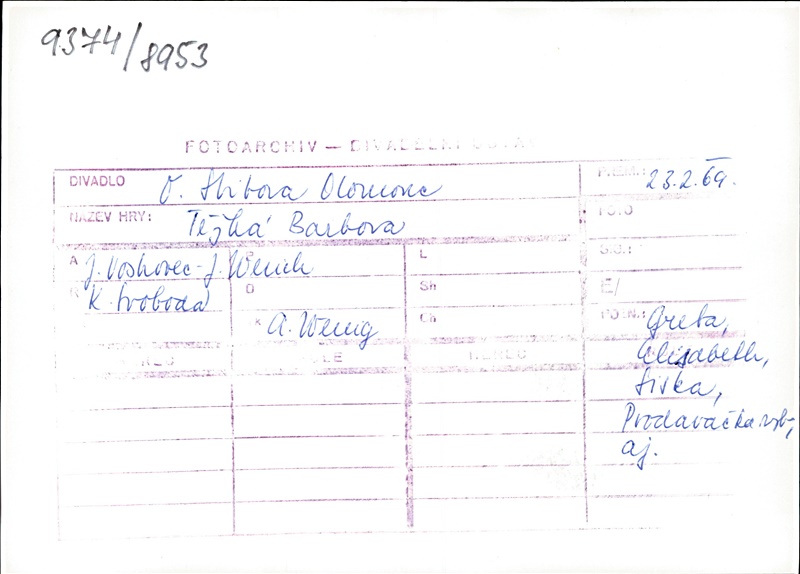 9374/8953
FOTOARCHIV — DIVADELNÍ ÚSTAV
DIVADLO O. Stibora Olomouc
PREM.: 23.2.69.
NÁZEV HRY: Těžká Barbora
A J. Voskovec - J. Werich
L
R K. Svoboda
D
Sh
E/
K A. Wenig
Ch
POZN.: Greta,
Elisabeth,
Sivka,
Prodavačka ryb,
aj.
HEREC